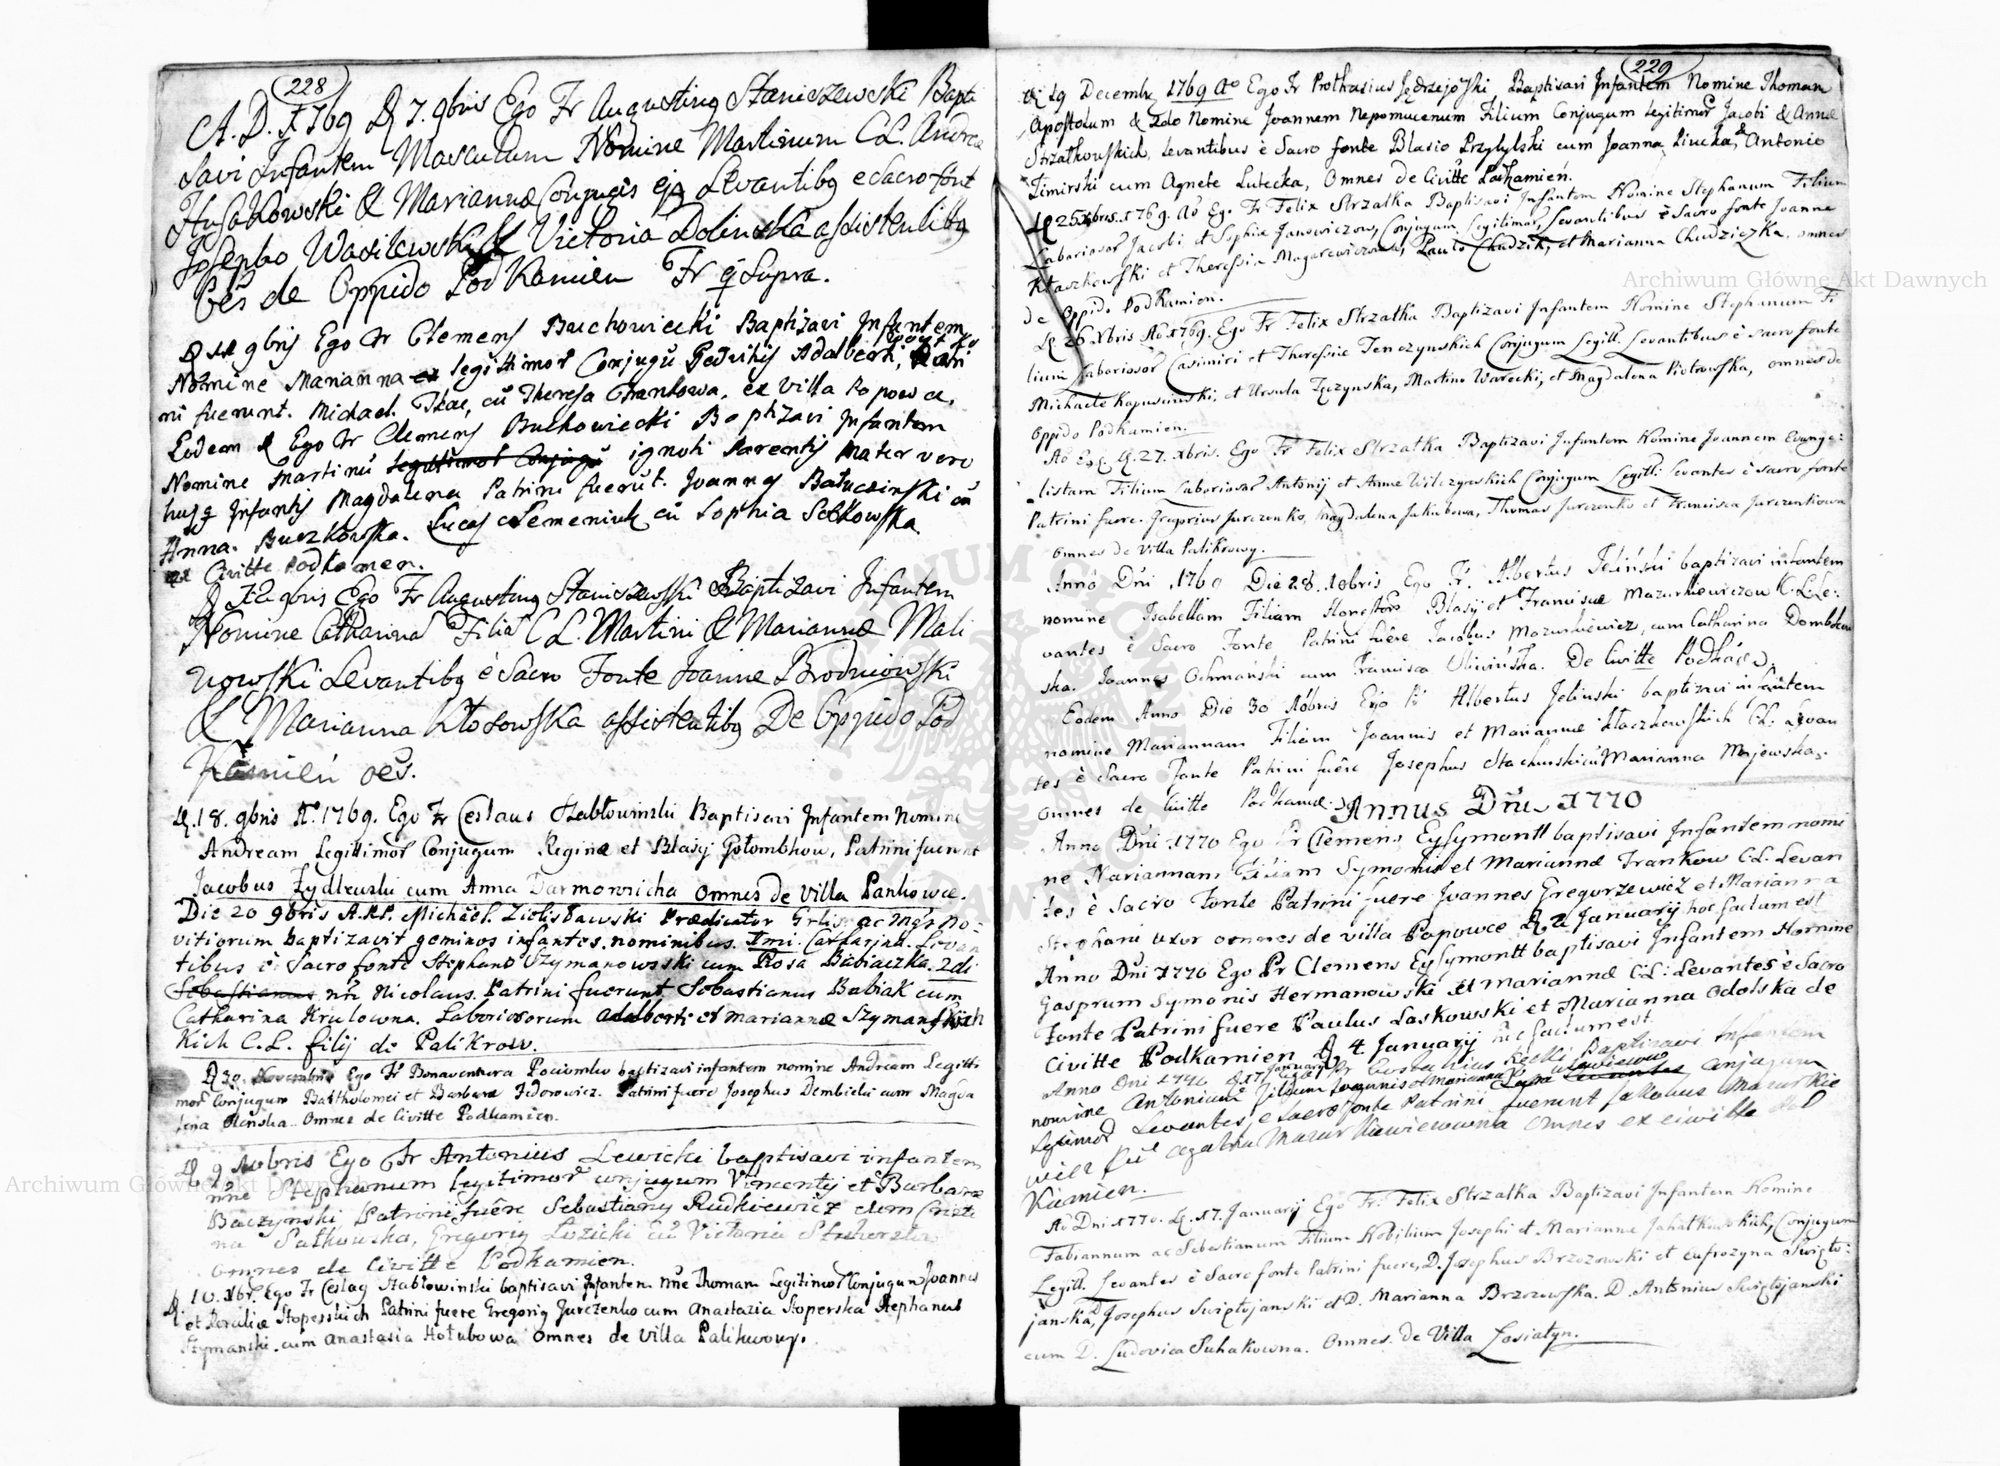 228
A. D. 1769 D 7. 9bris Ego Fr Augustinq Staniszewski Bapti
savi Infantem Masculum Nomine Martinum C.L. Andrea
Husakowski & Mariannæ Conjugis ejq Levantibq e Sacro font
Josepho Wasilewski & Victoria Dolinska assistentibq
Oēs de Oppido PodKamien Fr q Supra.
D 11 9bris Ego Fr Clemens Buchowiecki Baptizavi Infantem
Nomine Marianna legittimor Conjugū Adalberti,
ni fuerunt. Michael Tkac, cū Theresa, ex villa Popowce,
Eodem D Ego Fr Clemens Buchowiecki Baptizavi Infantem
Nomine Martinū ignoti Parentis Mater vero
hujq Infantis Magdalena Patrini fuerūt. Joannes Batuczinski cū
Anna. Buczkowska. Lucas Semeniuk cū Sophia Sołkowska
ex Civitte Podkamen.
D 12 9bris Ego Fr Augustinq Staniszewski Baptizavi Infantem
Nomine Catharina Filiā C L. Martini & Mariannæ Mali
nowski Levantibq è Sacro Fonte Joanne Brodniowski
& Marianna Kłosowska assistentibq De Oppido Pod
Kamień oēs.
D. 18. 9bris A° 1769. Ego Fr Ceslaus Stabłowinski Baptisavi Infantem Nomine
Andream Legittimor Conjugum Reginæ et Blasij Gołombkow, Patrini fuerunt
Jacobus Zydlewski cum Anna Darmoricha omnes de Villa Pankowce.
Die 20 9bris A.R.P. Michael Zielisławski Prædicator Grlis ac Mgr No-
vitiorum baptizavit geminos infantes nominibus. Imi Catharina. Levan
tibus è Sacro fonte Stephano Szymanowski cum Rosa Babiaczka. 2di
Sebastianus nre Nicolaus. Patrini fuerunt Sebastianus Babiak cum
Catharina Krulowna. Laboriosorum Adalberti et Mariannæ Szymans
kich C.L. filij di Palikrow.
D 30. Novembris Ego Fr Bonaventura Pociomko baptizavi infantem nomine Andream Legitti
mor Conjugum Bartholomei et Barbara Fedorowicz. Patrini fuere Josephus Dembicki cum Magda
lena Olenska. Omnes de Civitte Podkamien.
D 9 Xobris Ego Fr Antonius Lewicki baptisavi infantem
nne Stephanum legitimor conjugum Vincentij et Barbara
Baczynski, Patrini fuêre Sebastianq Rudkiewicz cum Cristi
na Sałkowska, Gregoriq Łozicki cū Victoria
omnes de Civitte Podkamien.
D. 10. Xbr. Ego Fr Ceslaq Stabłowinski baptisavi Infantem nne Thomam Legitimor Conjugum Joannis
et Rosaliæ Stopesskich Patrini fuere Gregoriq Jurczenko cum Anastazia Stoperska Stephanus
Szymanski cum Anastasia Hołubowa Omnes de Villa Palikrowy.
229
D 19 Decembr 1769 A° Ego Fr Prothasius Jędrzejoski, Baptisavi Infantem Nomine Thomam
Apostolum & 2do Nomine Joannem Nepomucenum Filium Conjugum Legitimor Jacobi & Annæ
Strzałkowskich, Levantibus è Sacro fonte Blasio Przylylski cum Joanna Piucka, & Antonio
Timirski cum Agnete Lutecka, Omnes de Civitte Podkamień.
D 26 Xbris. 1769. A° Ego Fr Felix Strzałka Baptisavi Infantem Nomine Stephanum Filium
Laboriosor Jacobi et Sophiæ Janowiczow, Conjugum Legitimor, Levantibus è Sacro fonte Joanne
Kłaczkowski et Theressia Magarewiczowa, Paulo Chudzik, et Marianna Chudziczka. omnes
de Oppido Podkamien.
D 26 Xbris A° 1769. Ego Fr Felix Strzałka Baptizavi Infantem Nomine Stephanum Fi
lium Laboriosor Casimiri et Theressiæ Tenczynskich Conjugum Legitt. Levantibus è sacro fonte
Michaele Kapuscinski, et Ursula Tęczynska, Martino Warecki, et Magdalena Piotrowska, omnes de
Oppido Podkamien.
A° Eo D. 27. Xbris. Ego Fr Felix Strzałka Baptizavi Infantem Nomine Joannem Evange:
listam Filium Laboriosor Antonij et Annæ Wilczynskich Conjugum Legitt: Levantes è sacro fonte
Patrini fuere. Gregorius Jurczenko, Magdalena Jakubowa, Thomas Jurczenko et Francisca Jurczentiowa
omnes de Villa Palikrowy.
Anno Dni 1769 Die 28. 10bris Ego Fr. Albertus Jeliński baptizavi infantem
nomine Isabellam Filiam Honestor Blasij et Franciscæ Mazurkiewiczow C.L. Le:
vantes è Sacro Fonte Patrini fuêre Jacobus Mazurkiewicz, cum Catharina Dombkow
ska. Joannes Ochmański cum Francisca Sliwińska. De Civitte Podkā
Eodem Anno Die 30 Xobris Ego Fr Albertus Jelinski baptizavi infantem
nomine Mariannam Filiam Joannis et Mariannæ Kłaczkowskich CL. Levan
tes è Sacro Fonte Patrini fuêre Josephus Stachurski cū Marianna Majewska.
omnes de Civitte Podkamie.
Annus Dni 1770
Anno Dni 1770 Ego Fr Clemens Eysymontt baptisavi Infantem nomi
ne Mariannam Filiam Symonis et Mariannæ Frankow C.L. Levan
tes è Sacro Fonte Patrini fuere Joannes Gregorzewicz et Marianna
Stephani uxor omnes de villa Popowce D 2 Januarij hoc factum est
Anno Dni 1770 Ego Fr Clemens Eysymontt baptisavi Infantem Nomine
Gasprum Symonis Hermanowski et Mariannæ C:L: Levantes è Sacro
Fonte Patrini fuere Paulus Laskowski et Marianna Odolska de
Civitte Podkamien D 4 Januarij hoc factum est.
Anno Dni 1770 D 17 Januarij Baptizavi Infantem
nomine Antonium Filium Joannis et Marianna conjugum
Legitimor Levantes e Sacro fonte Patrini fuerunt Jakobus Mazurkie
wicz cū Agatha omnes ex civitte Pod
Kamien.
A° Dni 1770. D. 17. Januarij Ego Fr: Felix Strzałka Baptizavi Infantem Nomine
Fabiannum ac Sebestianum Filium Nobilium Josephi et Mariannæ Conjugum
Legitt. Levantes è Sacro fonte Patrini fuere, D. Josephus Brzozowski et Eufrozyna Swięto:
janska, Josephus Swiętojanski et D. Marianna Brzozowska. D. Antonius Swiętojanski
cum D. Ludovica Suhakowna. Omnes. de Villa Łosiatyn.
Archiwum Główne Akt Dawnych
Archiwum Główne Akt Dawnych